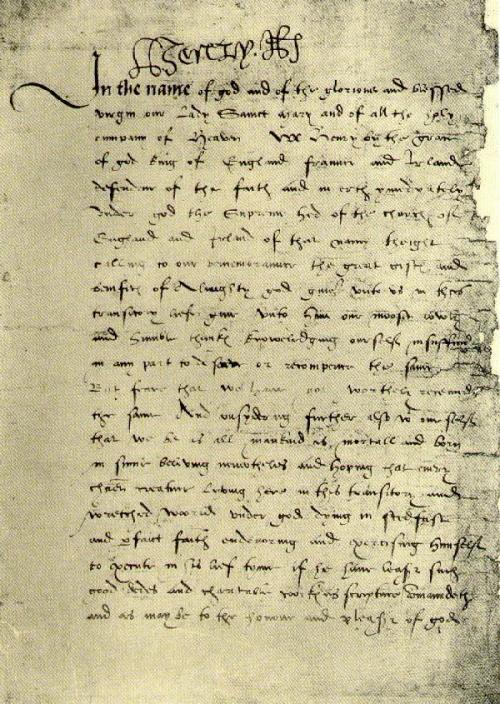 Henry R
In the name of god and of the glorious and blessed
virgin our Lady Sainct Mary and of all the holy
company of Heaven We Henry by the grace
of god king of England Fraunce and Irland
defendour of the faith and in erth ymmediately
under god the Supreme hed of the church of
England and Irland of that name theight
calling to our remembraunce the great gifts and
benefits of Almighty god given unto us in this
transitory lief give unto him our moost lowly
and humble thanks knowledging our self insufficient
in any part to deserve or recompence the same
But feare that we have not worthely received
the same And considering further also with our self
that we be as all mankind is mortall and born
in sinne believing nevertheles and hoping that every
chren creature Living here in this transitory and
wretched woorld under god dying in stedfast
and perfaict faith endevoring and exercising himself
to execute in his lief tyme if he have leasr such
good dedes and charitable works as scripture commandeth
and as may be to the honour and pleasr of god